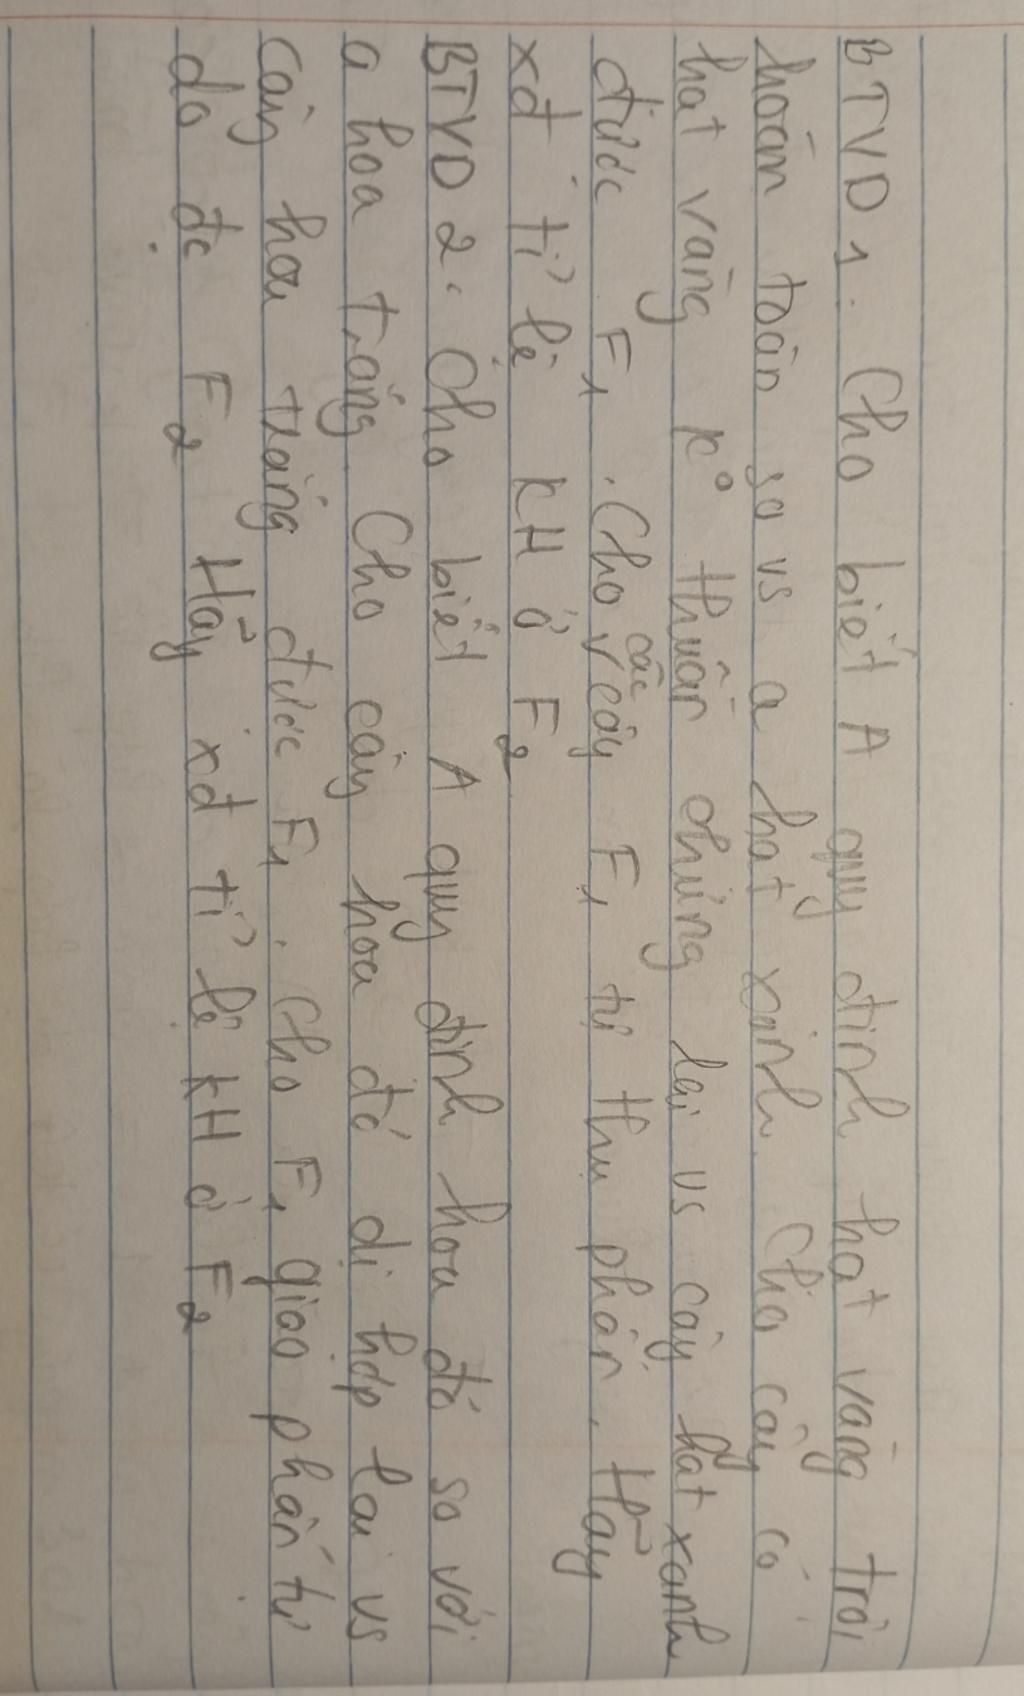 BTVD 1. Cho biết A quy định hạt vàng trội
hoàn toàn so vs a hạt xanh. Cho cây có
hạt vàng k° thuần chủng lai vs cây hạt xanh
được F1. Cho các cây F1 tự thụ phấn. Hãy
xđ tỉ lệ KH ở F2
BTVD 2. Cho biết A quy định hoa đỏ so với
a hoa trắng. Cho cây hoa đỏ dị hợp lai vs
cây hoa trắng được F1. Cho F1 giao phấn tự
do đc F2 Hãy xđ tỉ lệ KH ở F2